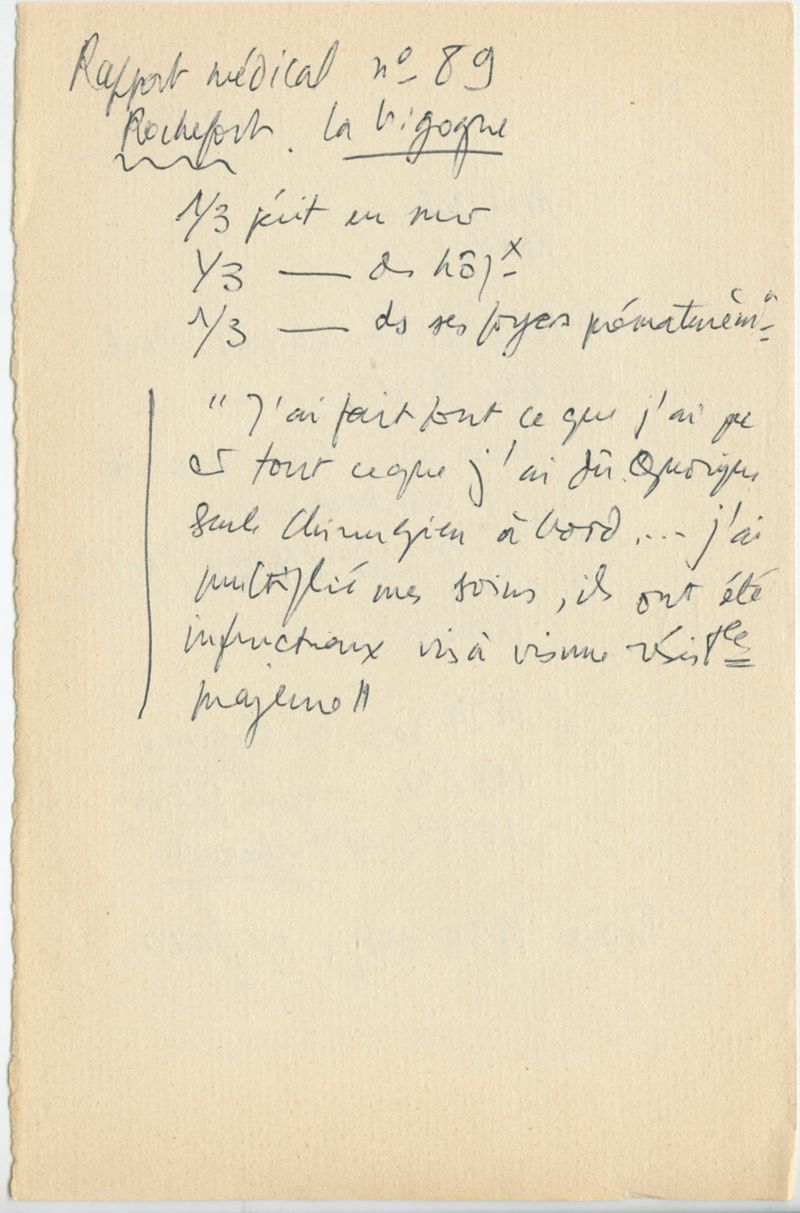 Rapport médical nº 89
Rochefort. la Vigogne
1/3 périt en mer
1/3 — ds hôpx
1/3 — ds ses foyers prématurémt
" J'ai fait tout ce que j'ai pu
et tout ce que j'ai dû. Quoique
seul chirurgien à bord ... j'ai
multiplié mes soins, ils ont été
infructueux vis à vis une
majeure "